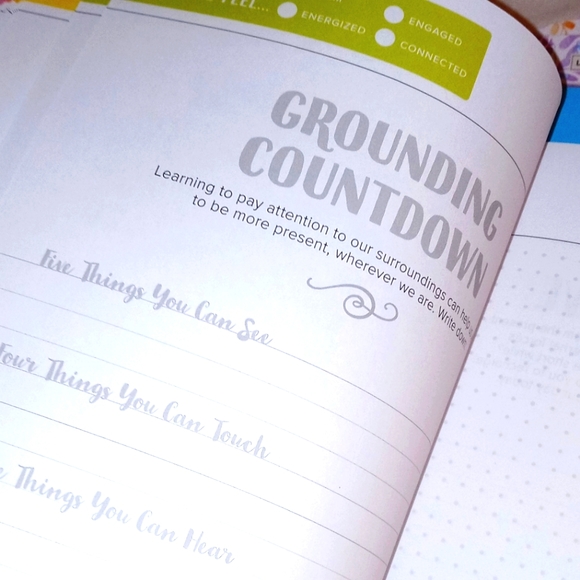 FEEL...
ENERGIZED
ENGAGED
CONNECTED
GROUNDING
COUNTDOWN
Learning to pay attention to our surroundings can help
to be more present, wherever we are. Write down
Five Things You Can See
Four Things You Can Touch
Things You Can Hear